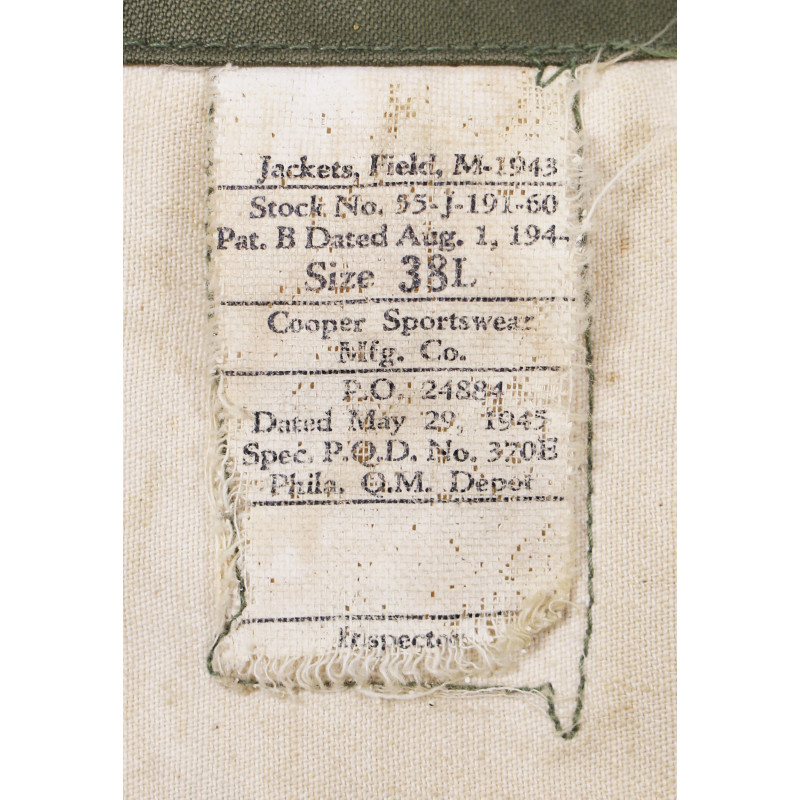 Jackets, Field, M-1943
Stock No. 55-J-191-60
Pat. B Dated Aug. 1, 194-
Size 38L
Cooper Sportswear
Mfg. Co.
P.O. 24884
Dated May 29, 1945
Spec. P.Q.D. No. 370E
Phila. Q.M. Depot
Inspector